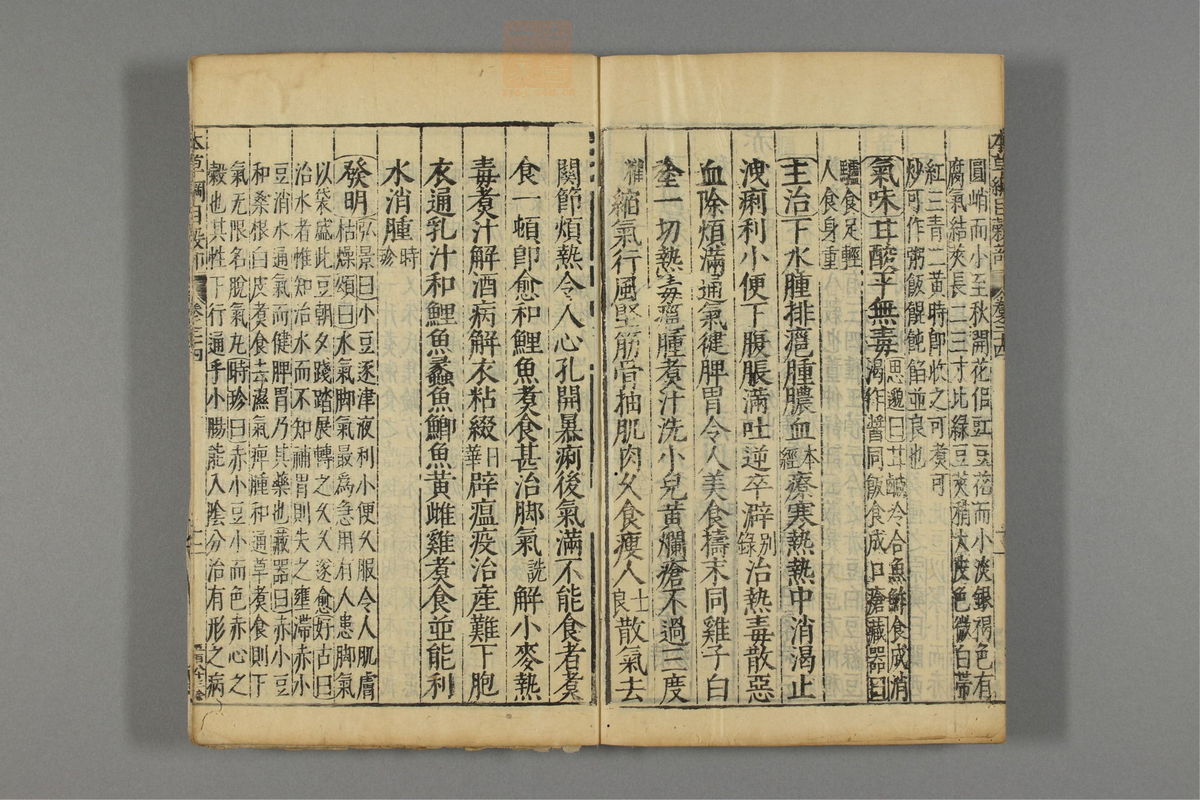 圓峭而小至秋開花侣豇豆花而小淡銀褐色有
腐氣結莢長二三寸比綠豆莢稍大皮色微白帶
紅三青二黃時卽收之可煑可
炒可作粥飯餛飩餡並良也
氣味甘酸平無毒思邈曰甘鹹冷合魚鮓食成消
渴作醬同飯食成口瘡藏器曰
驢食足輕
人食身重
主治下水腫排癰腫膿血本經療寒熱熱中消渴止
洩痢利小便下腹脹滿吐逆卒澼别錄治熱毒散惡
血除煩滿通氣健脾胃令人美食擣末同雞子白
塗一切熱毒癰腫煑汁洗小兒黃爛瘡不過三度
權縮氣行風堅筋骨抽肌肉久食瘦人士良散氣去
關節煩熱令人心孔開暴痢後氣滿不能食者煑
食一頓卽愈和鯉魚煑食甚治脚氣詵解小麥熱
毒煑汁解酒病解衣粘綴日華辟瘟疫治產難下胞
衣通乳汁和鯉魚蠡魚鯽魚黃雌雞煑食並能利
水消腫時珍
發明弘景曰小豆逐津液利小便久服令人肌膚
枯燥頌曰水氣脚氣最爲急用有人患脚氣
以袋盛此豆朝夕踐踏展轉之久久遂愈好古曰
治水者惟知治水而不知補胃則失之壅滯赤小
豆消水通氣而健脾胃乃其藥也藏器曰赤小豆
和桑根白皮煑食去濕氣痺腫和通草煑食則下
氣无限名脫氣丸時珍曰赤小豆小而色赤心之
穀也其性下行通乎小腸能入陰分治有形之病
本草綱目穀部 卷二十四